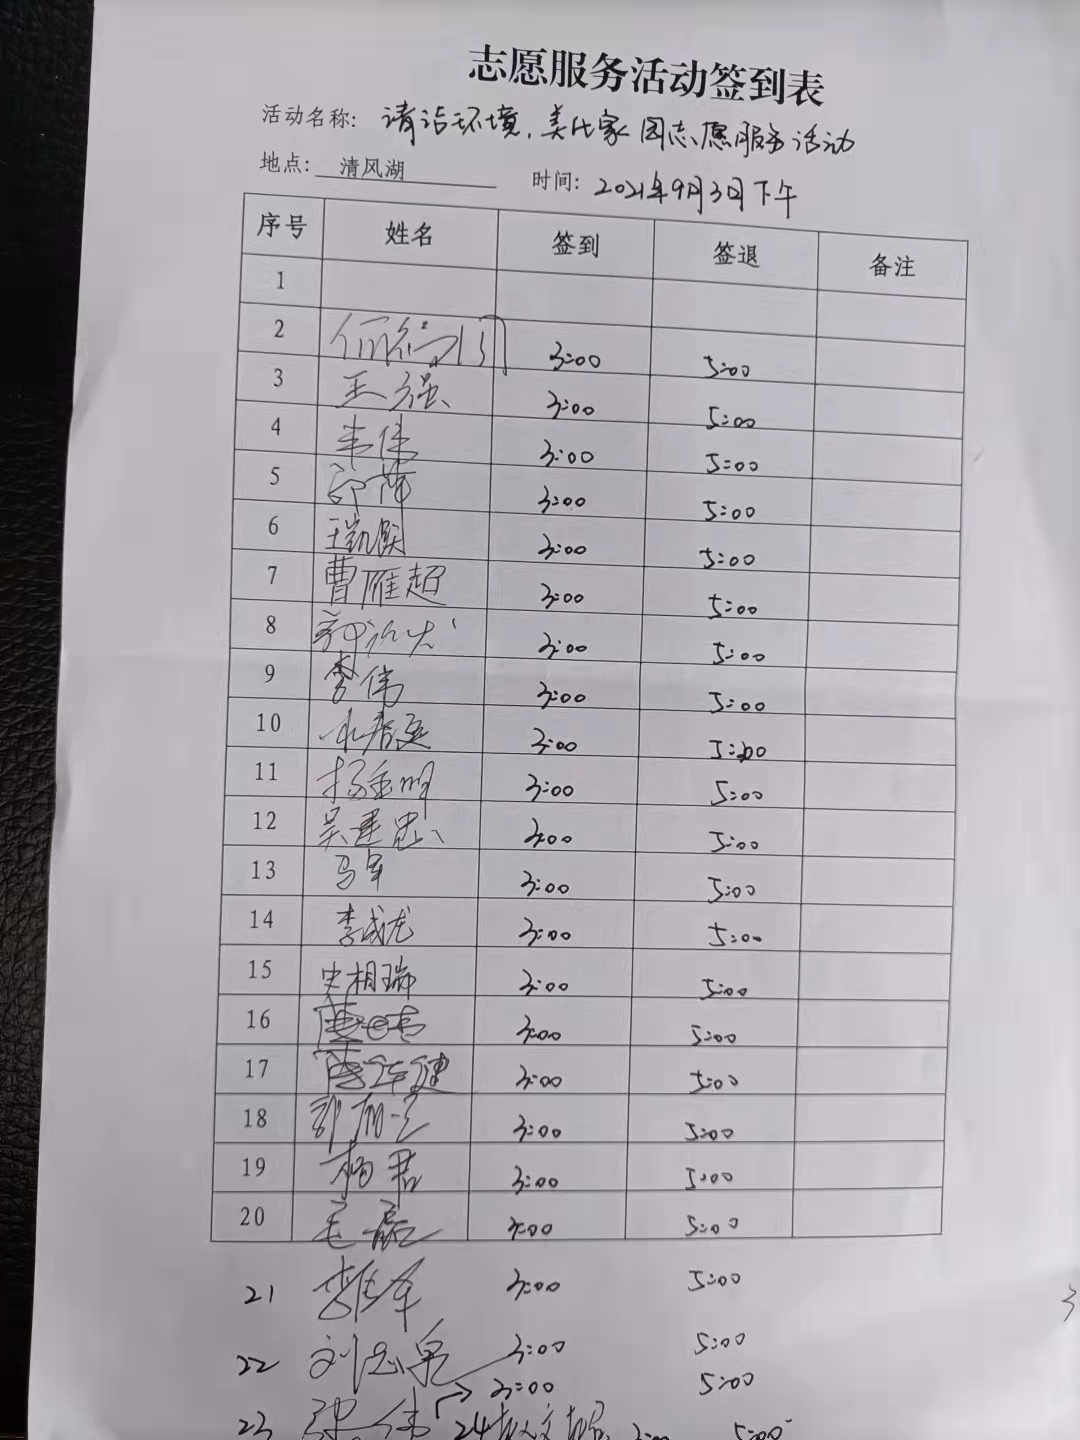 志愿服务活动签到表
活动名称: 请洁环境,美化家园志愿服务活动
地点: 清风湖 时间: 2021年9月3日下午
序号 姓名 签到 签退 备注
1
2 3:00 5:00
3 王强 3:00 5:00
4 韦伟 3:00 5:00
5 3:00 5:00
6 王凯 3:00 5:00
7 曹雁超 3:00 5:00
8 3:00 5:00
9 李伟 3:00 5:00
10 3:00 5:00
11 杨金明 3:00 5:00
12 吴建忠 3:00 5:00
13 马军 3:00 5:00
14 李成龙 3:00 5:00
15 史相瑞 3:00 5:00
16 3:00 5:00
17 3:00 5:00
18 3:00 5:00
19 杨君 3:00 5:00
20 毛磊 3:00 5:00
21 3:00 5:00
22 刘志泉 3:00 5:00
3:00 5:00
23 张伟 24 3:00 5:00
3